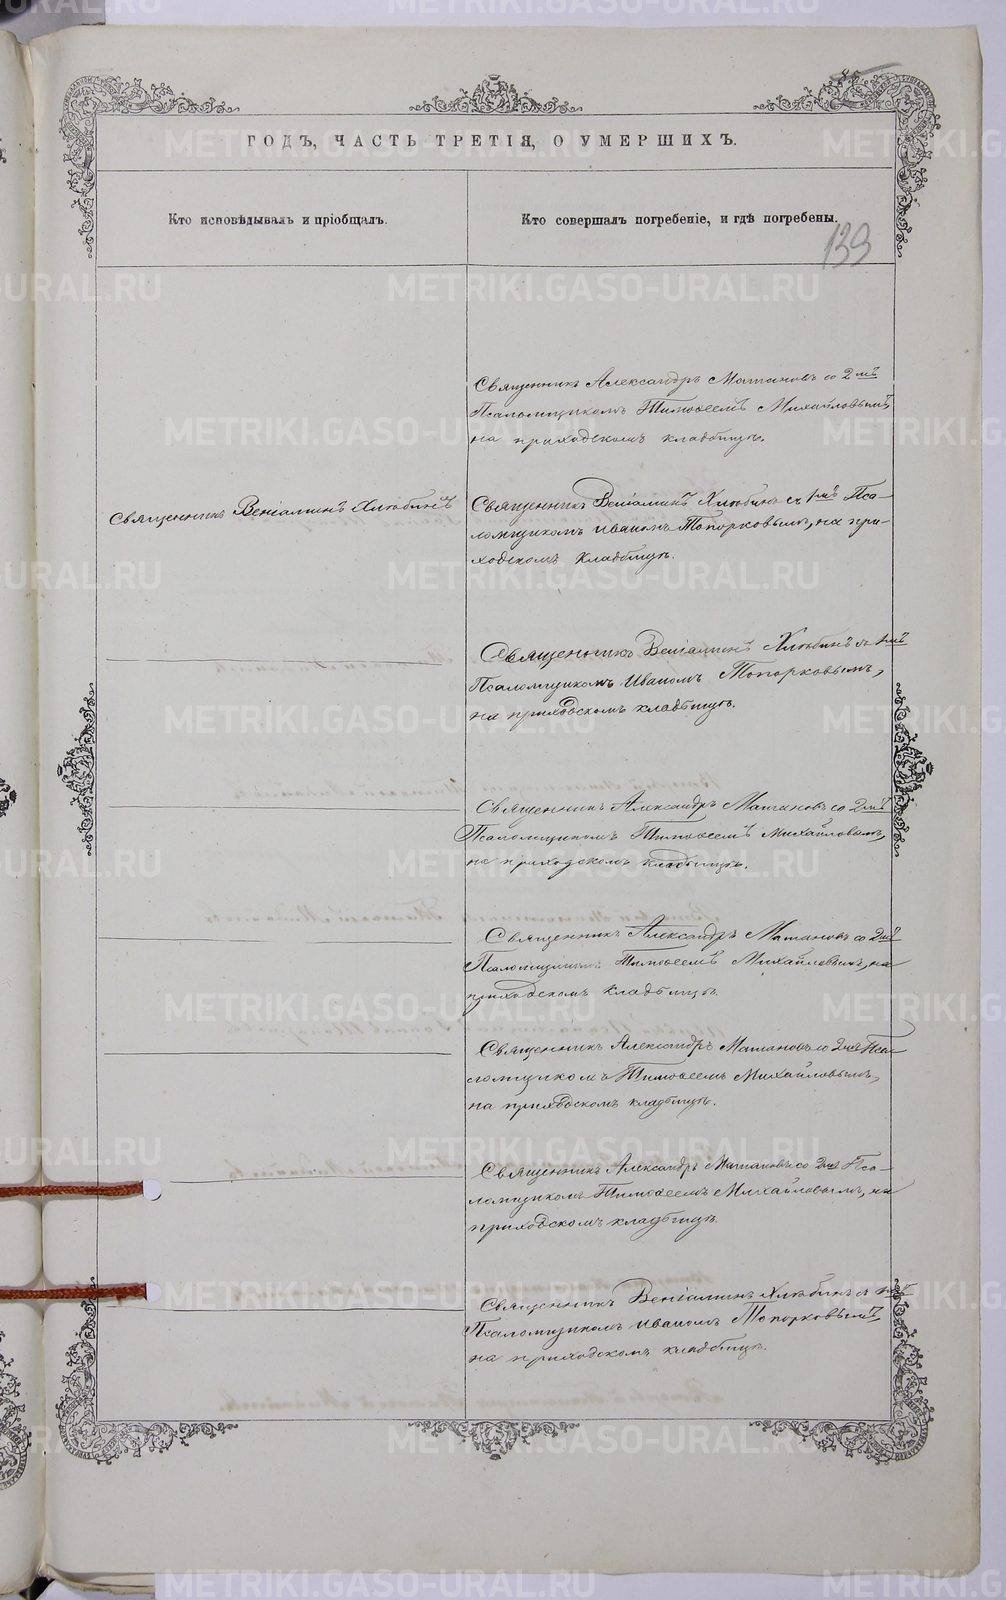 ГОДЪ, ЧАСТЬ ТРЕТІЯ, О УМЕРШИХЪ.
Кто исповѣдывалъ и пріобщалъ.
Кто совершалъ погребеніе, и гдѣ погребены.
139
Священникъ Александръ Матановъ со 2мъ
Псаломщикомъ Тимоѳеемъ Михайловымъ,
на приходскомъ кладбищѣ.
Священникъ Веніаминъ Хлѣбинъ
Священникъ Веніаминъ Хлѣбинъ съ 1мъ Пса-
ломщикомъ Иваномъ Топорковымъ, на при-
ходскомъ кладбищѣ.
Священникъ Веніаминъ Хлѣбинъ съ 1мъ
Псаломщикомъ Иваномъ Топорковымъ,
на приходскомъ кладбищѣ.
Священникъ Александръ Матановъ со 2мъ
Псаломщикомъ Тимоѳеемъ Михайловымъ,
на приходскомъ кладбищѣ.
Священникъ Александръ Матановъ со 2мъ
Псаломщикомъ Тимоѳеемъ Михайловымъ, на
приходскомъ кладбищѣ.
Священникъ Александръ Матановъ со 2мъ Пса
ломщикомъ Тимоѳеемъ Михайловымъ,
на приходскомъ кладбищѣ.
Священникъ Александръ Матановъ со 2мъ Пса-
ломщикомъ Тимоѳеемъ Михайловымъ, на
приходскомъ кладбищѣ.
Священникъ Веніаминъ Хлѣбинъ съ 1мъ
Псаломщикомъ Иваномъ Топорковымъ,
на приходскомъ кладбищѣ.
METRIKI.GASO-URAL.RU